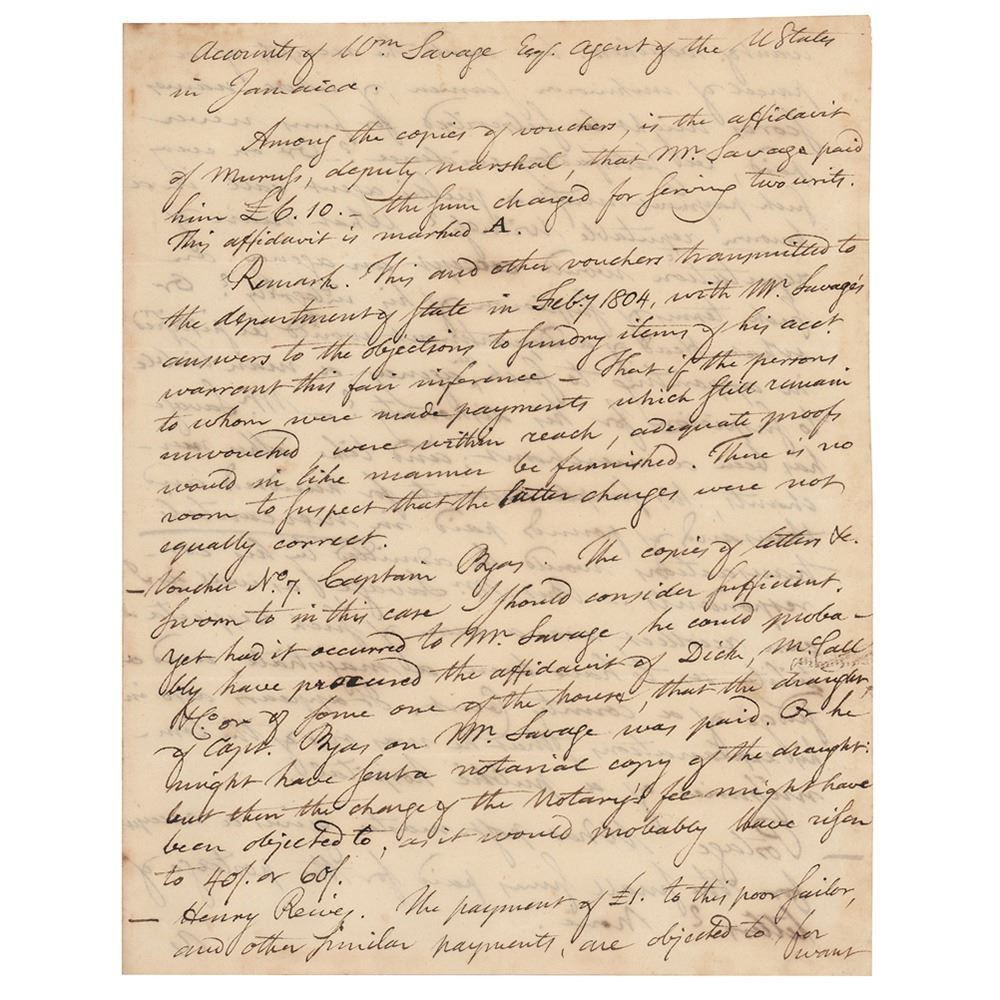 Accounts of Wm Savage Esqr. agent of the U States
in Jamaica.
Among the copies of vouchers, is the affidavit
of , deputy marshal, that Mr. Savage paid
him £6.10. - the sum charged for serving two writs.
This affidavit is marked A.
Remark. This and other vouchers transmitted to
the department of State in Feby 1804, with Mr. Savage's
answers to the objections to sundry items of his acct
warrant this fair inference - That if the persons
to whom were made payments which still remain
unvouched, were within reach, adequate proofs
would in like manner be furnished. There is no
room to suspect that the latter charges were not
equally correct.
- Voucher No. 7. Captain Byas. The copies of letters &c.
sworn to in this case I should consider sufficient.
Yet had it occurred to Mr. Savage, he could proba-
bly have procured the affidavit of Dick, McCall
& Co or of some one of the house, that the draught
of Capt. Byas on Mr. Savage was paid. Or he
might have sent a notarial copy of the draught:
but then the charge of the Notary's fee might have
been objected to; as it would probably have risen
to 40/. or 60/.
- Henry . The payment of £1. to this poor sailor,
and other similar payments, are objected to, for
want